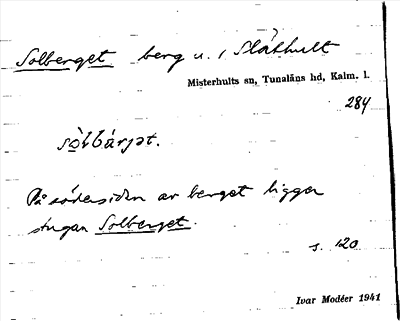 Solberget berg u. i Slåthult
Misterhults sn, Tunaläns hd, Kalm. l.
284
sòlbárjət.
På södersidan av berget ligger
stugan Solberget.
s. 120
Ivar Modéer 1941